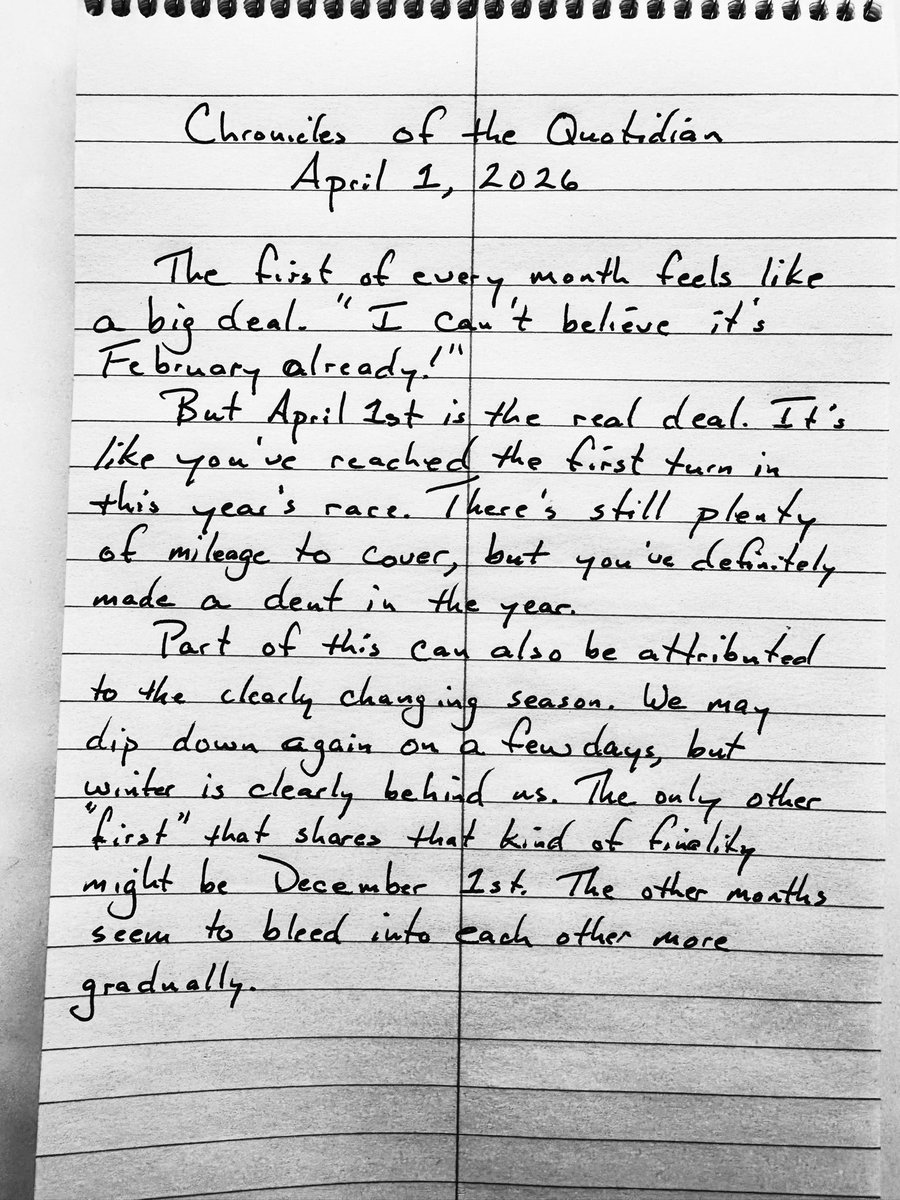 Chronicles of the Quotidian
April 1, 2026
The first of every month feels like
a big deal. "I can't believe it's
February already!"
But April 1st is the real deal. It's
like you've reached the first turn in
this year's race. There's still plenty
of mileage to cover, but you've definitely
made a dent in the year.
Part of this can also be attributed
to the clearly changing season. We may
dip down again on a few days, but
winter is clearly behind us. The only other
"first" that shares that kind of finality
might be December 1st. The other months
seem to bleed into each other more
gradually.